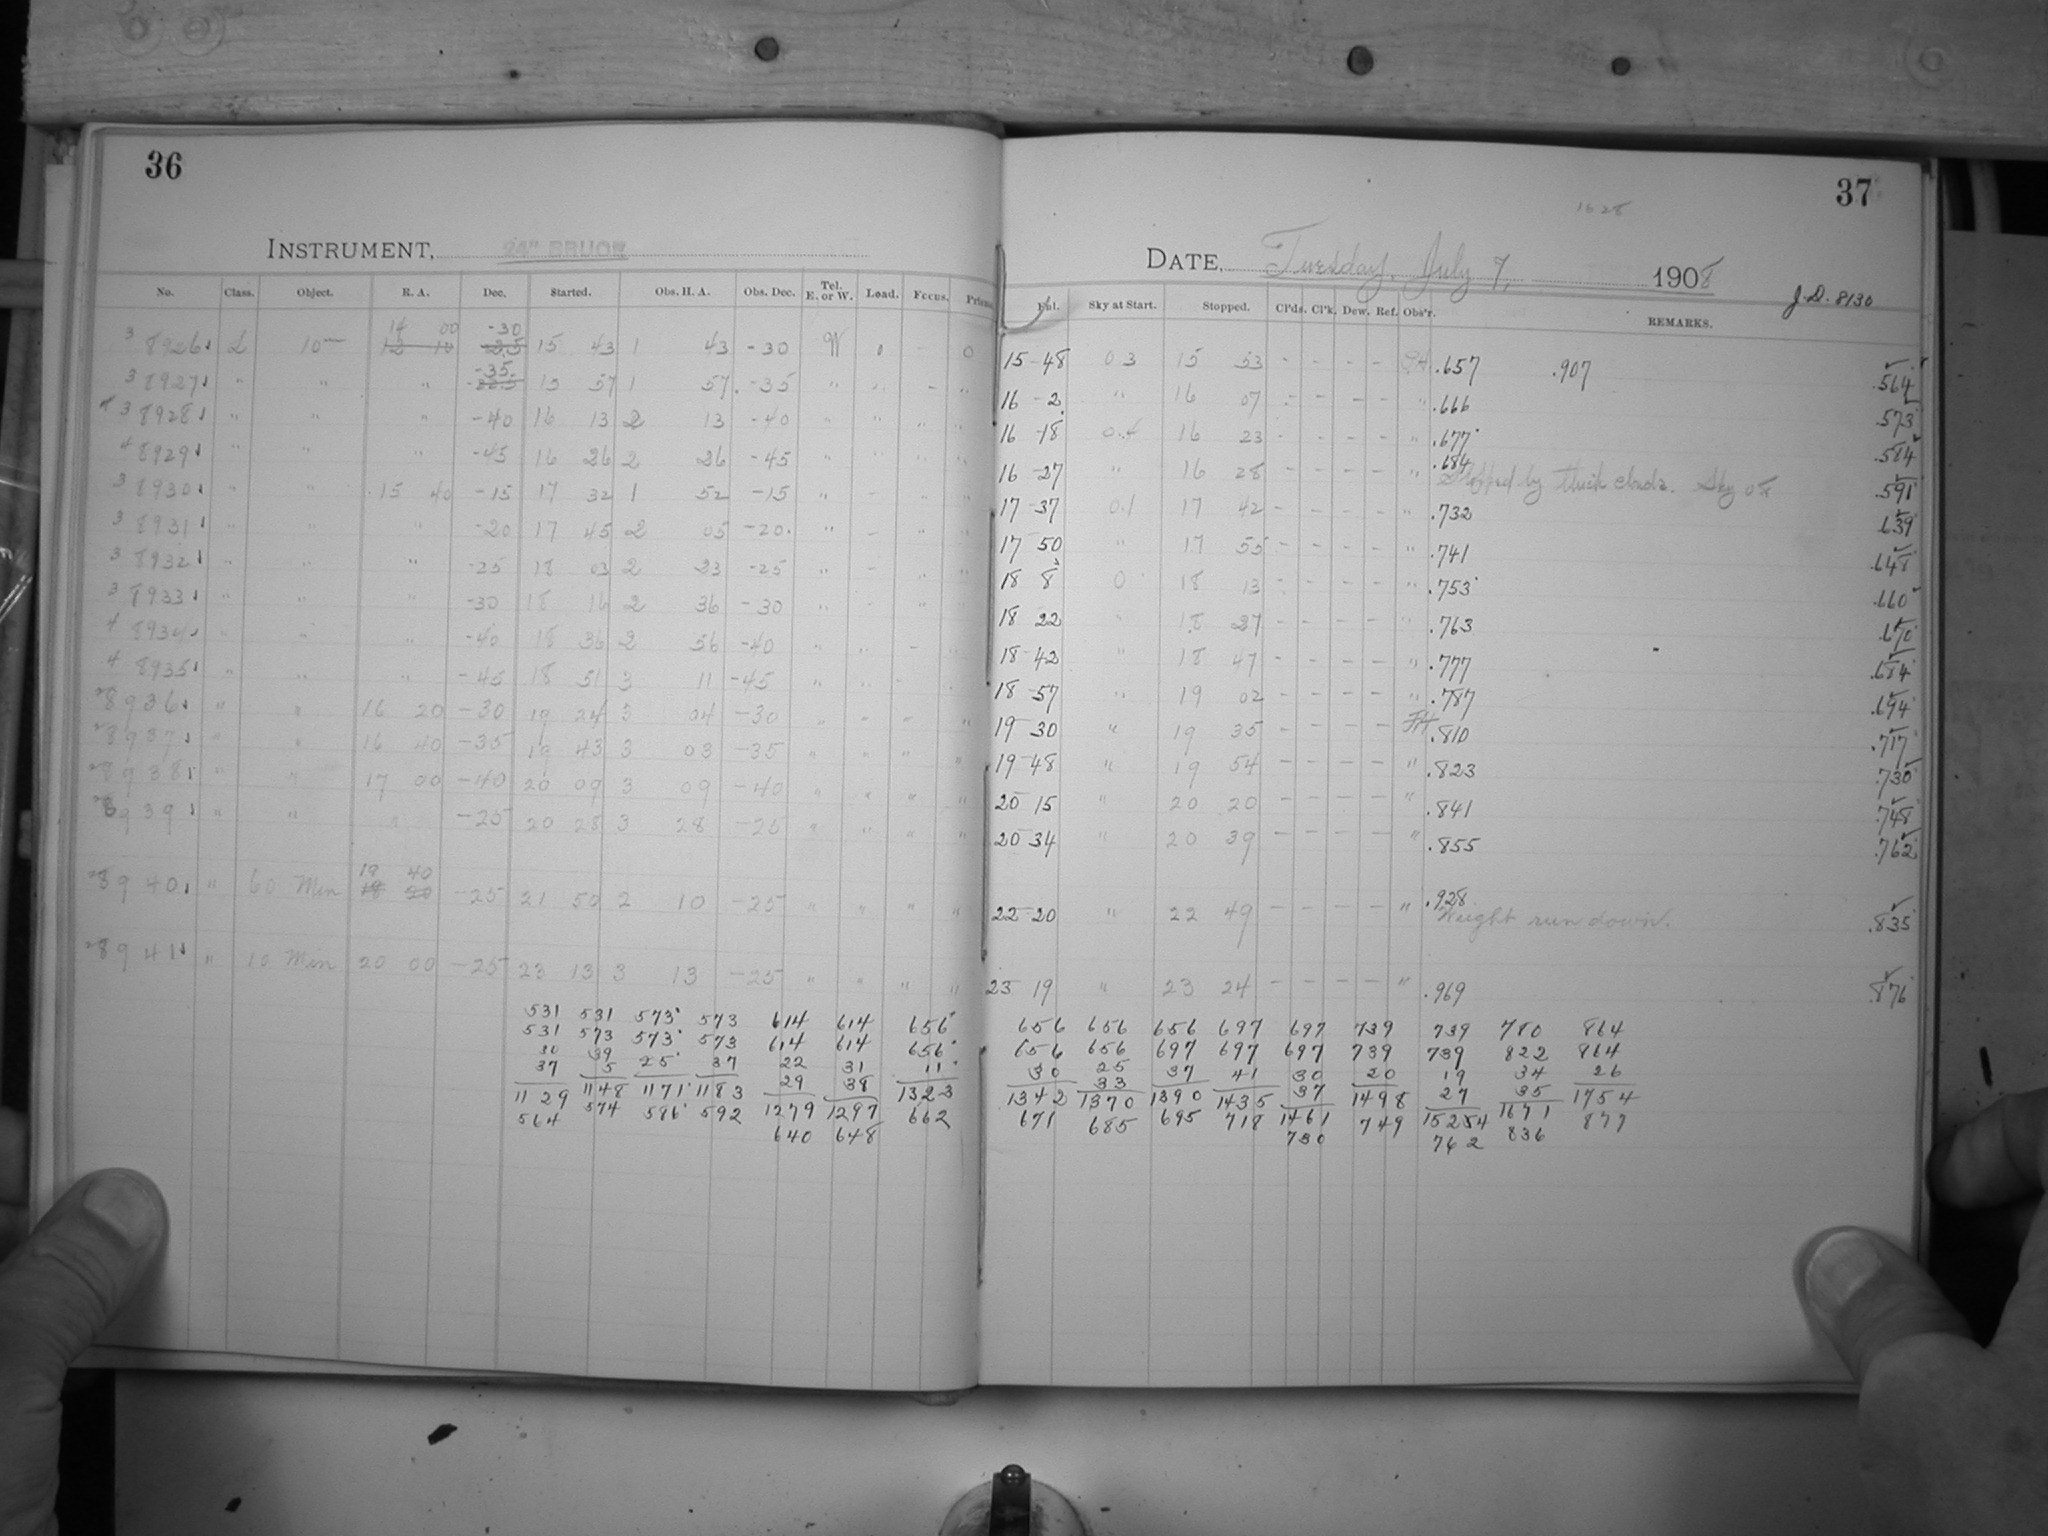 36
INSTRUMENT, 24" BRUCE
No. Class. Object. R. A. Dec. Started. Obs. H. A. Obs. Dec. Tel. E. or W. Load. Focus. Prism.
14 00 -30
3 8926 L 10m 15 43 1 43 -30 W 0 - 0
-35
3 8927 " " " 15 57 1 57 -35 " " - "
4 3 8928 " " " -40 16 13 2 13 -40 " " " "
4 8929 " " " -45 16 26 2 26 -45 " " " "
3 8930 " " 15 40 -15 17 32 1 52 -15 " - " "
3 8931 " " " -20 17 45 2 05 -20 " - "
3 8932 " " " -25 18 03 2 23 -25 " - " "
3 8933 " " " -30 18 16 2 36 -30 " - " "
4 8934 " " " -40 18 36 2 56 -40 " " -
4 8935 " " " -45 18 51 3 11 -45 " " -
8936 " " 16 20 -30 19 24 3 04 -30 " " " "
8937 " " 16 40 -35 19 43 3 03 -35 " " " "
8938 " " 17 00 -40 20 09 3 09 -40 " " " "
8939 " " " -25 20 28 3 28 -25 " " " "
19 40
8940 " 60 Min -25 21 50 2 10 -25 " " " "
8941 " 10 Min 20 00 -25 23 13 3 13 -25 " " " "
531 531 573 573 614 614 656
531 573 573 573 614 614 656
30 39 25 37 22 31 11
37 5 29 38
1129 1148 1171 1183 1279 1297 1323
564 574 586 592 640 648 662
37
1628
DATE, Tuesday, July 7, 1908
J.D. 8130
Sky at Start. Stopped. Cl'ds. Cl'k. Dew. Ref. Obs'r. REMARKS.
15-48 03 15 53 - - - - .657 .907 .564
16-2 " 16 07 - - - - " .666 .573
16-18 0.4 16 23 - - - - " .677 .584
16-27 " 16 28 - - - - " .684 Stopped by thick clouds. Sky .591
17-37 0.1 17 42 - - - - " .732 .639
17 50 " 17 55 - - - - " .741 .648
18 8 0 18 13 - - - - " .753 .660
18 22 " 18 27 - - - - " .763 .670
18-42 " 18 47 - - - - " .777 .684
18-57 " 19 02 - - - - " .787 .694
19-30 " 19 35 - - - - .810 .717
19-48 " 19 54 - - - - " .823 .730
20 15 " 20 20 - - - - " .841 .748
20 34 " 20 39 - - - - " .855 .762
22-20 " 22 49 - - - - " .928 Weight run down. .835
23 19 " 23 24 - - - - " .969 .876
656 656 656 697 697 739 739 780 864
656 656 697 697 697 739 739 822 864
30 25 37 41 30 20 19 34 26
33 37 27 35
1342 1370 1390 1435 1461 1498 15254 1671 1754
671 685 695 718 730 749 762 836 877